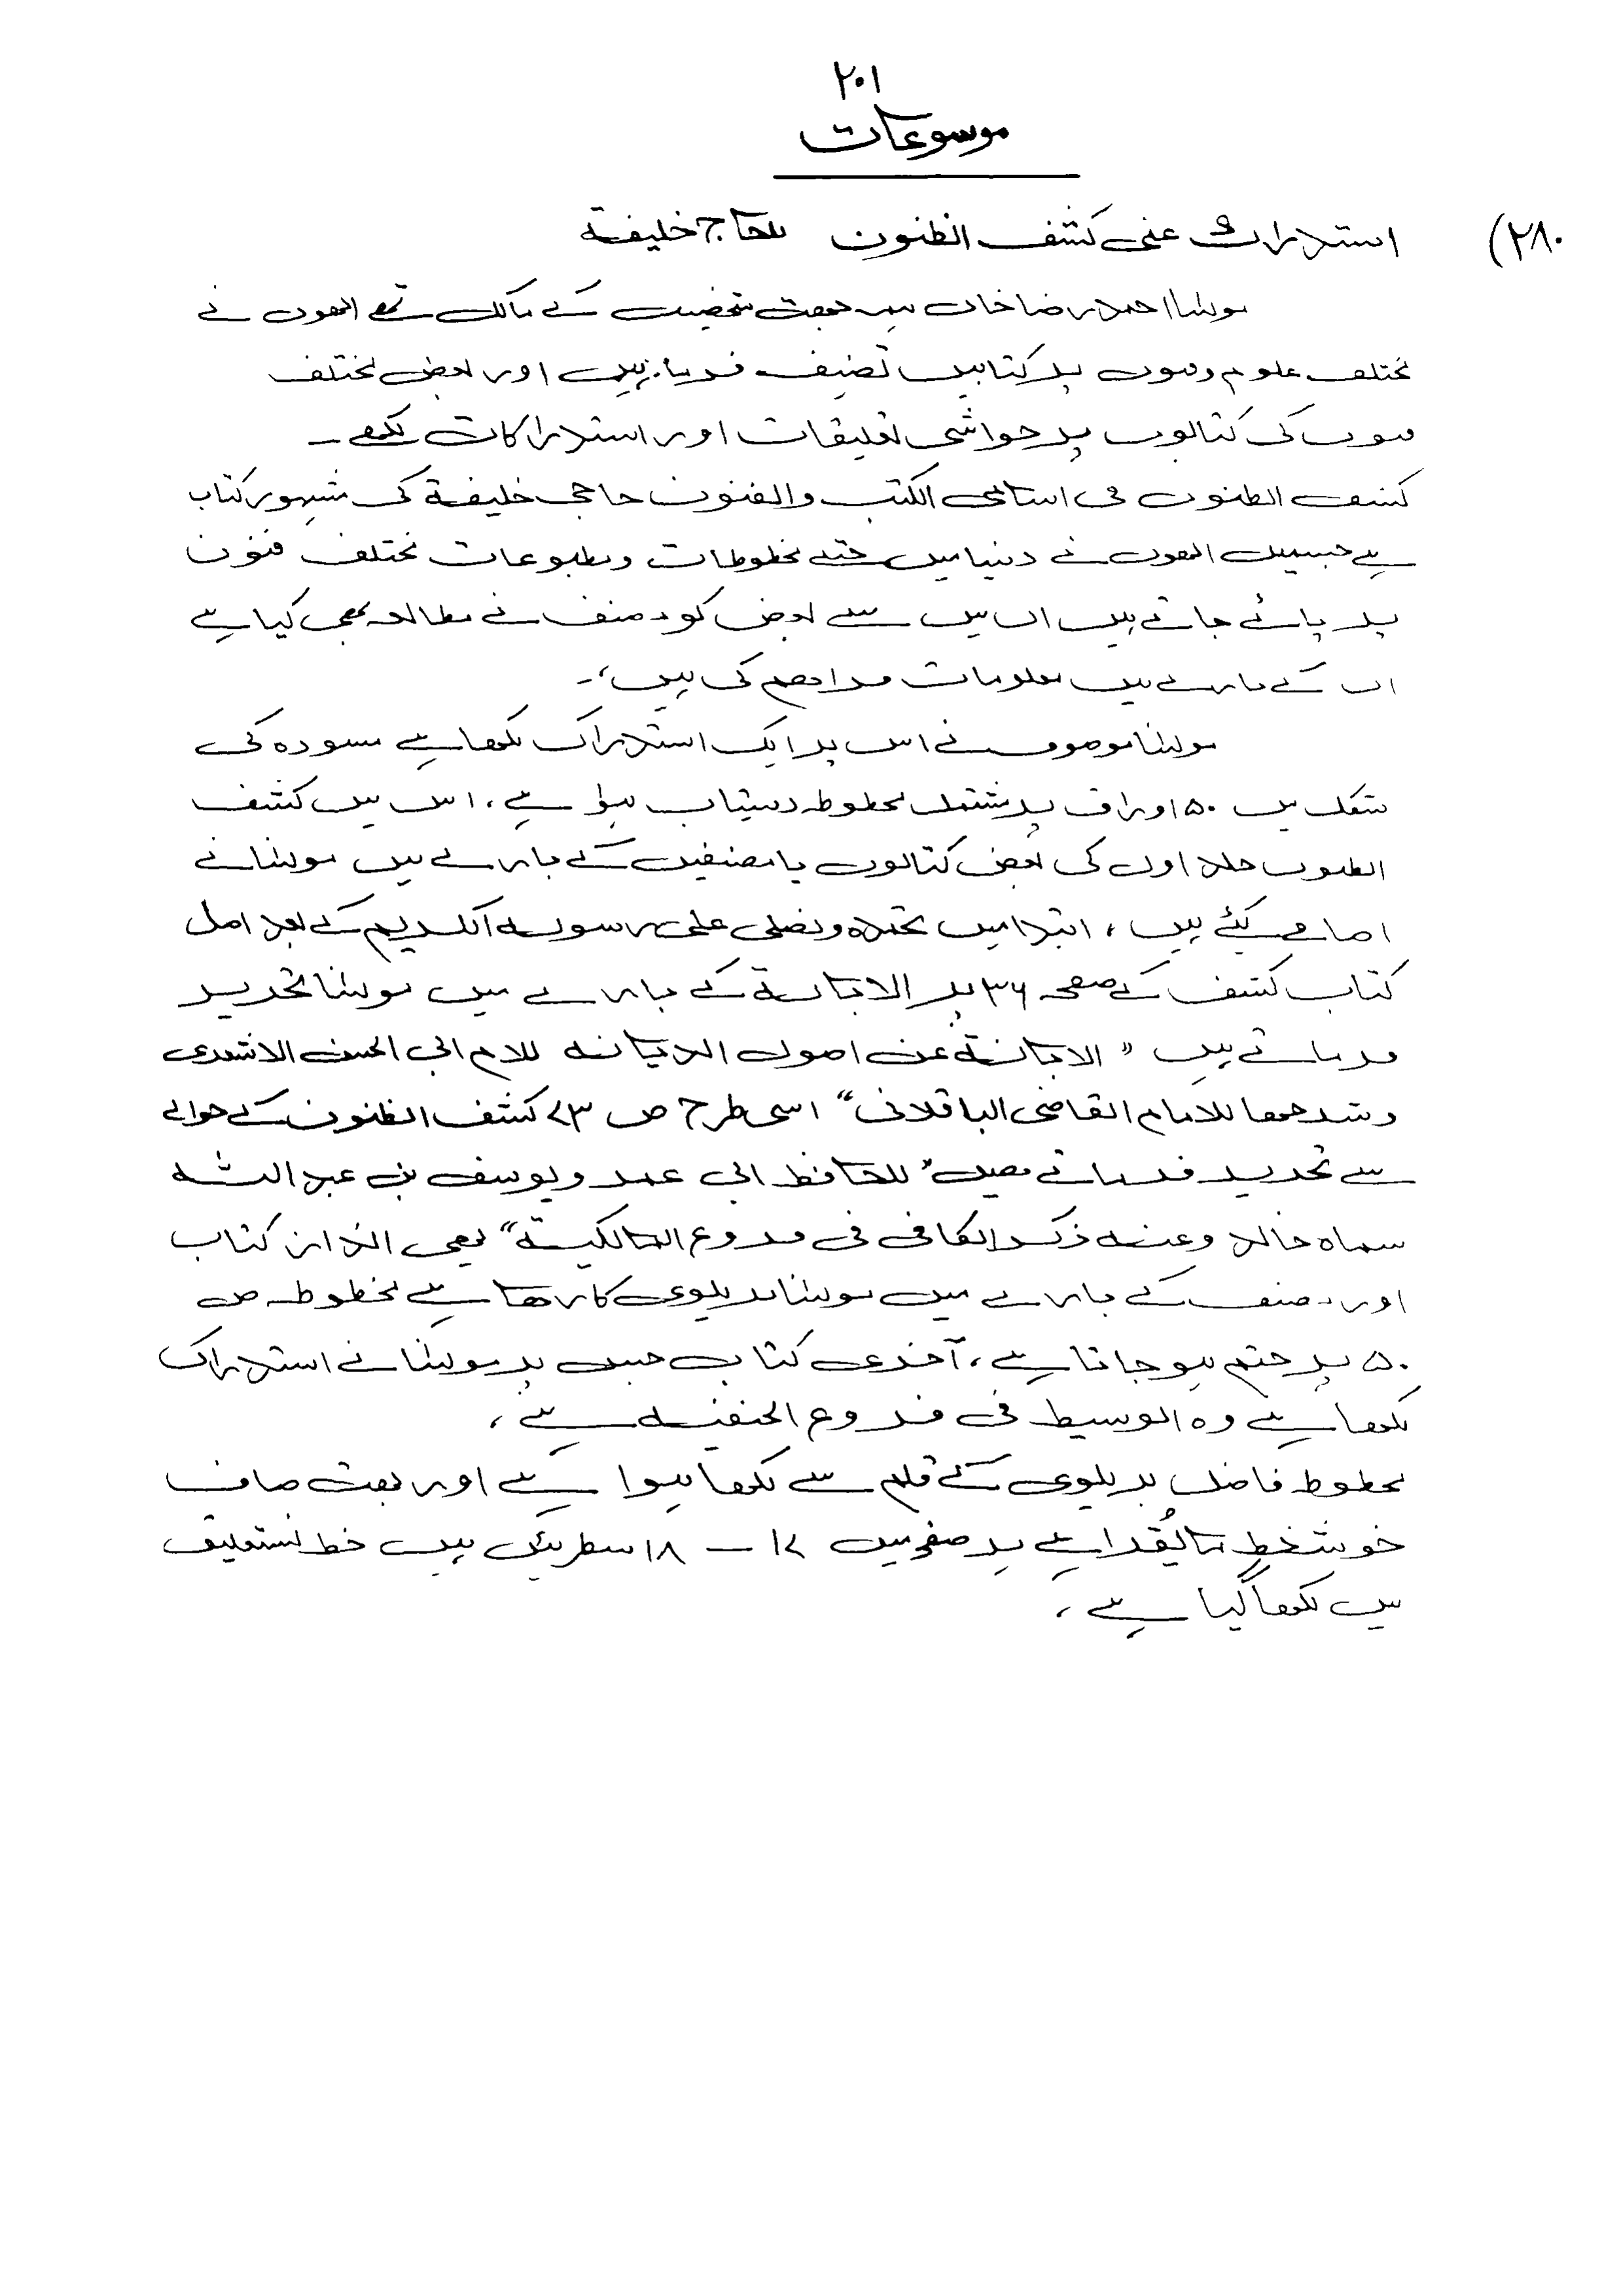 ۲۰۱
موسوعات
۲۸۰) استدراک علی کشف الظنون للحاج خلیفة
مولٰنا احمد رضا خاں ہمہ جہت شخصیت کے مالک تھے انھوں نے
مختلف علوم وفنون پر کتابیں تصنیف فرمائیں اور بعض مختلف
فنون کی کتابوں پر حواشی تعلیقات اور استدراکات لکھے ۔
کشف الظنون فی اسامی الکتب والفنون حاجی خلیفة کی مشہور کتاب
ہے جسمیں انھوں نے دنیا میں جتنے مخطوطات ومطبوعات مختلف فنون
پر پائے جاتے ہیں ان میں سے بعض کو مصنف نے مطالعہ بھی کیا ہے
ان کے بارے میں معلومات فراہم کی ہیں، ۔
مولٰنا موصوف نے اس پر ایک استدراک لکھا ہے مسودہ کی
شکل میں ۵۰ اوراق پر مشتمل مخطوطہ دستیاب ہوا ہے، اس میں کشف
الظنون جلد اول کی بعض کتابوں یا مصنفین کے بارے میں مولٰنا نے
اضافے کئے ہیں، ابتدا میں نحمدہ ونصلی علی رسولہ الکریم کے بعد اصل
کتاب کشف کے صفحہ ۳۶ پر الابانة کے بارے میں مولٰنا تحریر
فرماتے ہیں ” الابانة عن اصول الدیانہ للام ابی الحسن الاشعری
وشرحھا للامام القاضی الباقلانی“ اسی طرح ص ۷۳ کشف الظنون کے حوالے
سے تحریر فرماتے ھیں” للحافظ ابی عمر ویوسف بن عبد اللہ
سماہ خالد وعنہ ذکر الکافی فی فروع المالکیة“ یھی انداز کتاب
اور مصنف کے بارے میں مولٰنا بریلوی کا رھا ہے مخطوطہ ص
۵۰ پر ختم ہو جاتا ہے، آخری کتاب جس پر مولٰنا نے استدراک
لکھا ہے وہ الوسیط فی فروع الحنفیہ ہے ،
مخطوطہ فاضل بریلوی کے قلم سے لکھا ہوا ہے اور بھت صاف
خوشخط تا یُقرا ہے ہر صفحہ میں ۱۷ – ۱۸ سطریں ہیں خط نستعلیق
میں لکھا گیا ہے ،